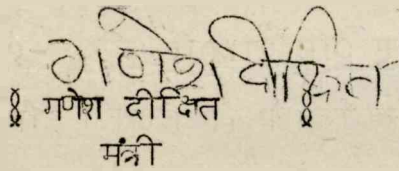 गणेश दीक्षित
गणेश दीक्षित
मंत्री